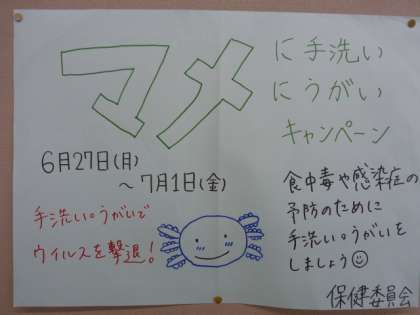 マメに手洗い
にうがい
キャンペーン
6月27日(月)
～7月1日(金)
手洗い。うがいで
ウイルスを撃退!
食中毒や感染症の
予防のために
手洗い。うがいを
しましょう
保健委員会